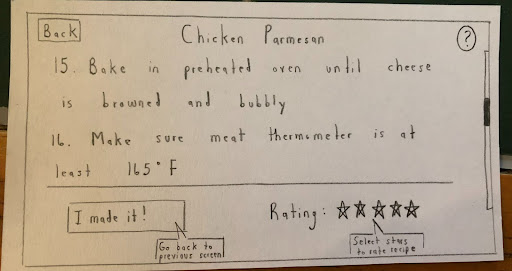 Back
Chicken Parmesan
?
15. Bake in preheated oven until cheese
is browned and bubbly
16. Make sure meat thermometer is at
least 165° F
I made it!
Rating: ☆☆☆☆☆
Go back to
previous screen
Select stars
to rate recipe